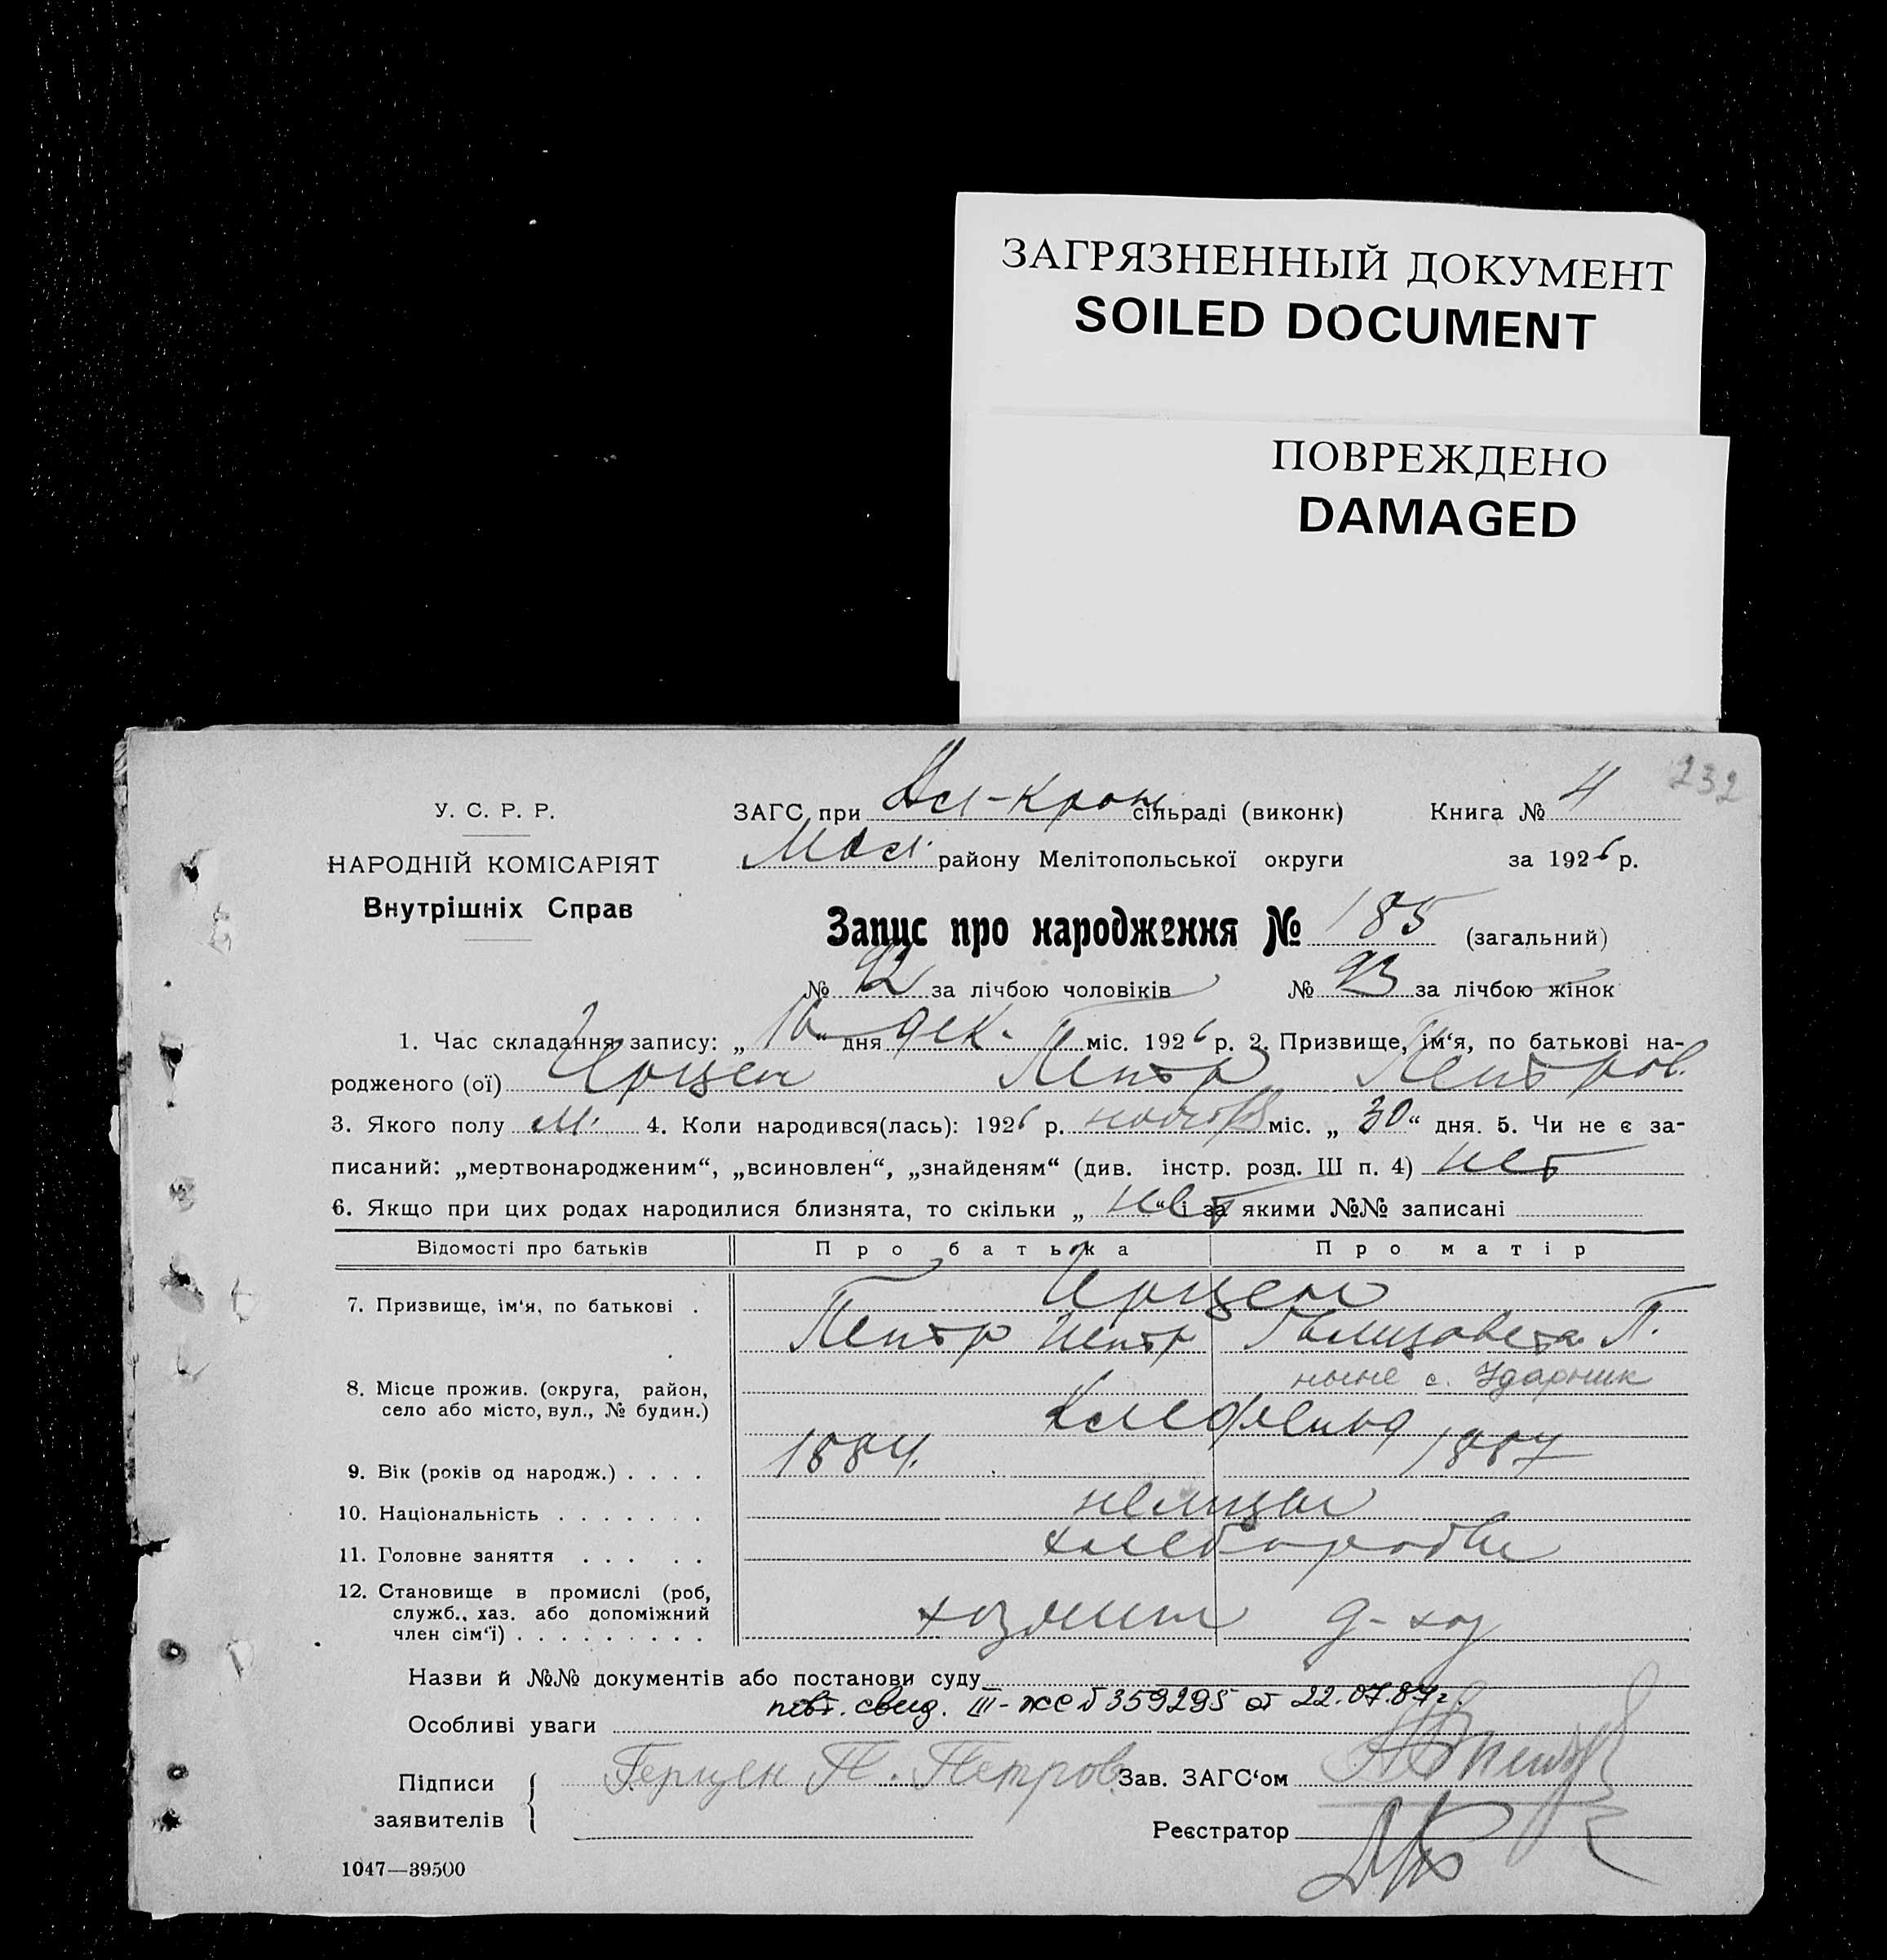 ЗАГРЯЗНЕННЫЙ ДОКУМЕНТ
SOILED DOCUMENT
ПОВРЕЖДЕНО
DAMAGED
232
У. С. Р. Р.
НАРОДНІЙ КОМІСАРІЯТ
Внутрішніх Справ
ЗАГС при сільраді (виконк) Книга № 4
району Мелітопольської округи за 1926 р.
Запис про народження № 185 (загальний)
№ 92 за лічбою чоловіків № 93 за лічбою жінок
1. Час складання запису: „ 10 “ дня дек. міс. 1926 р. 2. Призвище, ім‘я, по батькові на-
родженого (ої) Петр Петров.
3. Якого полу м. 4. Коли народився(лась): 1926 р. ноября міс. „ 30 “ дня. 5. Чи не є за-
писаний: „мертвонародженим“, „всиновлен“, „знайденям“ (див. інстр. розд. III п. 4) нет
6. Якщо при цих родах народилися близнята, то скільки „ нет “ і за якими №№ записані
Відомості про батьків Про батька Про матір
7. Призвище, ім‘я, по батькові .
Петр Петр Елизавета П.
ныне с. Ударник
8. Місце прожив. (округа, район,
село або місто, вул., № будин.)
9. Вік (років од народж.) . . . . 1884. 1887
10. Національність . . . . . . . немцы
11. Головне заняття . . . . . хлеборобы
12. Становище в промислі (роб,
служб., хаз. або допоміжний
член сім‘ї) . . . . . . . . . хозяин д-хоз
Назви й №№ документів або постанови суду
повт. свид. III-ЖС № 359295 от 22.07.87г.
Особливі уваги
Підписи
заявителів
Герцен П. Петров
Зав. ЗАГС‘ом
Реєстратор
1047—39500